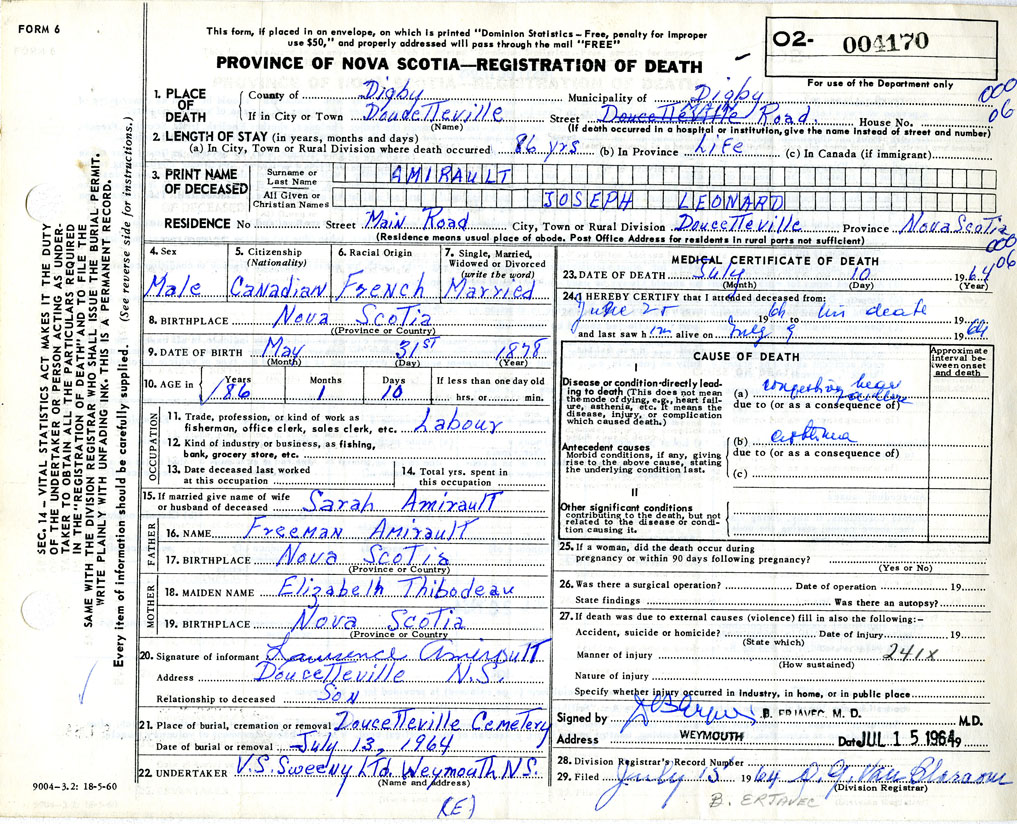 FORM 6
This form, if placed in an envelope, on which is printed "Dominion Statistics – Free, penalty for improper
use $50," and properly addressed will pass through the mail "FREE"
02- 004170
PROVINCE OF NOVA SCOTIA—REGISTRATION OF DEATH
For use of the Department only
000
06
1. PLACE OF DEATH
County of Digby Municipality of Digby
If in City or Town Doucetteville Street Doucetteville MAIN Road. House No.
(Name) (If death occurred in a hospital or institution, give the name instead of street and number)
2. LENGTH OF STAY (in years, months and days)
(a) In City, Town or Rural Division where death occurred 86 yrs (b) In Province Life (c) In Canada (if immigrant)
3. PRINT NAME OF DECEASED
Surname or Last Name AMIRAULT
All Given or Christian Names JOSEPH LEONARD
RESIDENCE No Street Main Road City, Town or Rural Division Doucetteville Province Nova Scotia
(Residence means usual place of abode. Post Office Address for residents in rural parts not sufficient)
000
06
4. Sex 5. Citizenship (Nationality) 6. Racial Origin 7. Single, Married, Widowed or Divorced (write the word)
Male Canadian French Married
8. BIRTHPLACE Nova Scotia
(Province or Country)
9. DATE OF BIRTH May 31ST 1878
(Month) (Day) (Year)
10. AGE in Years Months Days If less than one day old
86 1 10 hrs. or min.
OCCUPATION
11. Trade, profession, or kind of work as
fisherman, office clerk, sales clerk, etc. Labour
12. Kind of industry or business, as fishing,
bank, grocery store, etc.
13. Date deceased last worked at this occupation
14. Total yrs. spent in this occupation
15. If married give name of wife
or husband of deceased Sarah Amirault
FATHER
16. NAME Freeman Amirault
17. BIRTHPLACE Nova Scotia
(Province or Country)
MOTHER
18. MAIDEN NAME Elizabeth Thibodeau
19. BIRTHPLACE Nova Scotia
(Province or Country)
20. Signature of informant Lawrence Amirault
Address Doucetteville N.S.
Relationship to deceased Son
21. Place of burial, cremation or removal Doucetteville Cemetery
Date of burial or removal July 13, 1964
22. UNDERTAKER V.S. Sweeny Ltd. Weymouth N.S.
(Name and Address)
MEDICAL CERTIFICATE OF DEATH
23. DATE OF DEATH July 10 1964
(Month) (Day) (Year)
24. I HEREBY CERTIFY that I attended deceased from:
June 25 1964 to his death 19
and last saw him alive on July 9 1964
CAUSE OF DEATH
Approximate interval between onset and death
I
Disease or condition directly leading to death (This does not mean
the mode of dying, e.g., heart failure, asthenia, etc. It means the
disease, injury, or complication
which caused death.)
(a) congestive heart failure
due to (or as a consequence of)
Antecedent causes
Morbid conditions, if any, giving
rise to the above cause, stating
the underlying condition last.
(b) asthma
due to (or as a consequence of)
(c)
II
Other significant conditions
contributing to the death, but not
related to the disease or condition causing it.
25. If a woman, did the death occur during
pregnancy or within 90 days following pregnancy?
(Yes or No)
26. Was there a surgical operation? Date of operation 19
State findings Was there an autopsy?
27. If death was due to external causes (violence) fill in also the following:–
Accident, suicide or homicide? Date of injury 19
(State which)
Manner of injury 241X
(How sustained)
Nature of injury
Specify whether injury occurred in industry, in home, or in public place
Signed by B. ERJAVEC, M. D. M.D.
Address WEYMOUTH Dat JUL 15 1964 19
28. Division Registrar's Record Number
29. Filed July 15 1964
(Division Registrar)
B. ERTAVEC
9004-3.2: 18-5-60
(E)
SEC. 14 — VITAL STATISTICS ACT MAKES IT THE DUTY
OF THE UNDERTAKER OR PERSON ACTING AS UNDER-
TAKER TO OBTAIN ALL THE PARTICULARS REQUIRED
IN THE "REGISTRATION OF DEATH" AND TO FILE THE
SAME WITH THE DIVISION REGISTRAR WHO SHALL ISSUE THE BURIAL PERMIT.
WRITE PLAINLY WITH UNFADING INK. THIS IS A PERMANENT RECORD.
Every item of information should be carefully supplied. (See reverse side for instructions.)